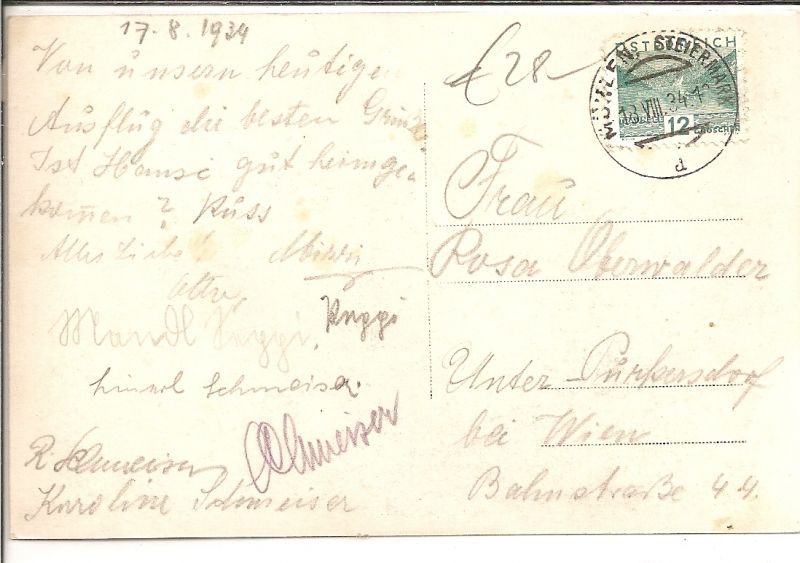 17.8.1934
Von unsern heutigen
Ausflug die besten Grüße
Ist Hansi gut heimge-
kommen? Kuss
Alles Liebe!
Otto,
Mandl Peppi,
Peppi
Schmeiser
Schmeiser
R. Schmeiser
Karoline Schmeiser
£28-
ÖSTERREICH
12 GROSCHEN
MÜHLEN, STEIERMARK
VIII.34
a
Frau
Rosa Oberwalder
Unter-Purkersdorf
bei Wien
Bahnstraße 44.